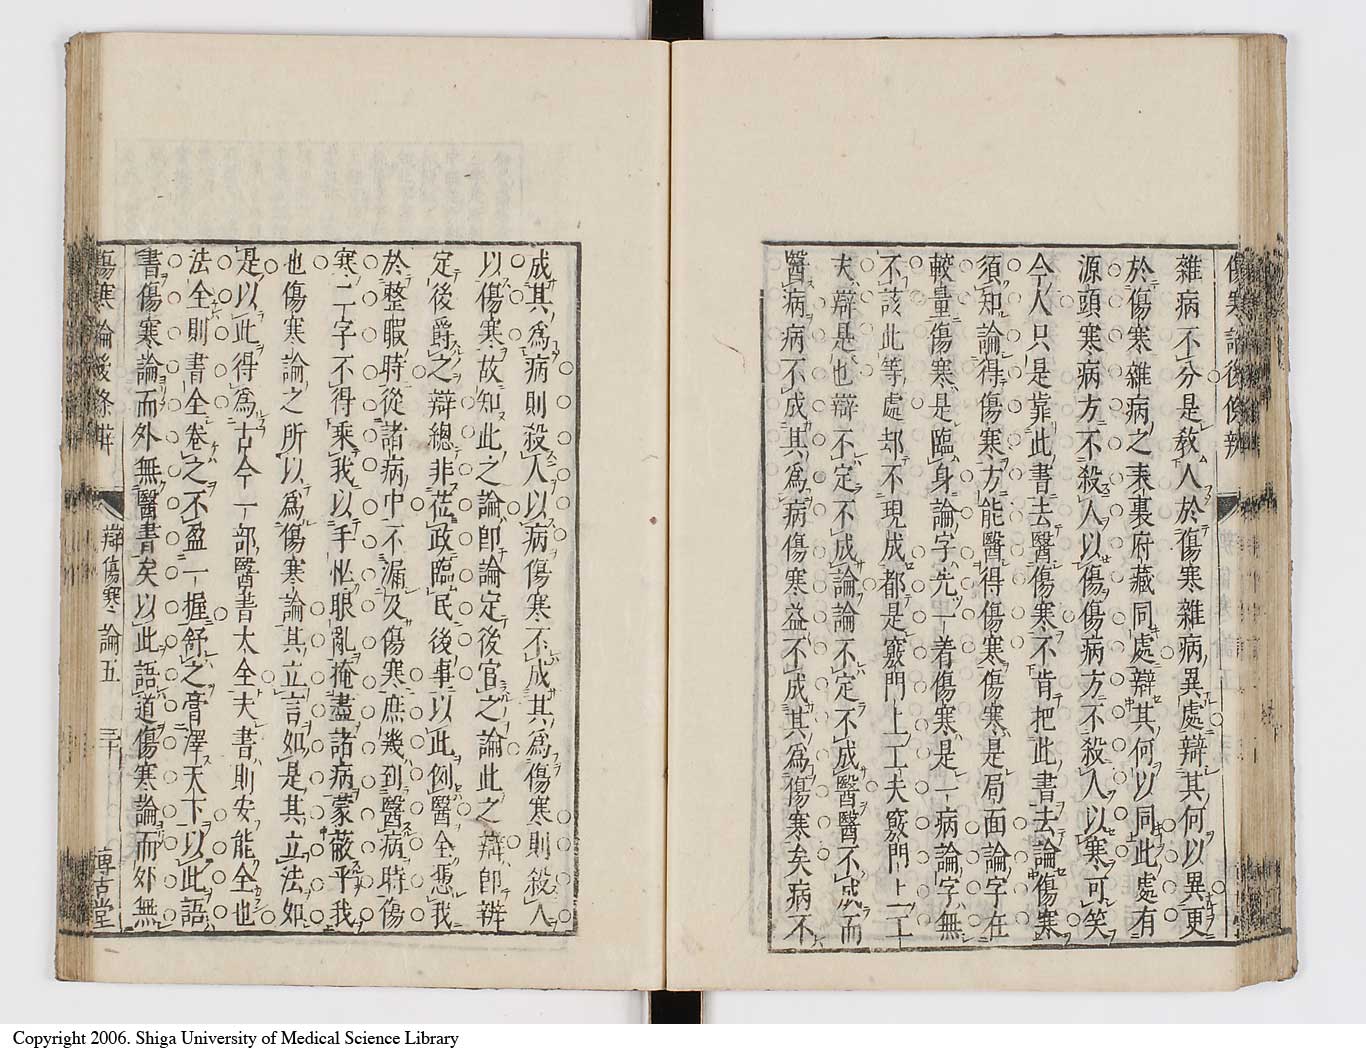 傷寒論後條辨
雜病不分是教人於傷寒雜病異處辯其何以異更
於傷寒雜病之表裏府藏同處辯其何以同此處有
源頭寒病方不殺人以傷傷病方不殺人以寒可笑
今人只是靠此書去醫傷寒不肯把此書去論傷寒
須知論得傷寒方能醫得傷寒傷寒是局面論字在
較量傷寒是臨身論字先一着傷寒是一病論字無
不該此等處却不現成都是竅門上工夫竅門上工
夫辯是也辯不定不成論論不定不成醫醫不成而
醫病病不成其爲病傷寒益不成其爲傷寒矣病不
成其爲病則殺人以病傷寒不成其爲傷寒則殺人
以傷寒故知此之論即論定後官之論此之辯即辨
定後爵之辯總非莅政臨民後事以此例醫全憑我
於整暇時從諸病中不漏及傷寒庶幾到醫病時傷
寒二字不得乘我以手忙眼亂掩盡諸病蒙蔽乎我
也傷寒論之所以爲傷寒論其立言如是其立法如
是以此得爲古今一部醫書太全夫書則安能全也
法全則書全卷之不盈一握舒之膏澤天下以此語
書傷寒論而外無醫書矣以此語道傷寒論而外無
傷寒論後條辨
辯傷寒論五
三十
博古堂
Copyright 2006. Shiga University of Medical Science Library